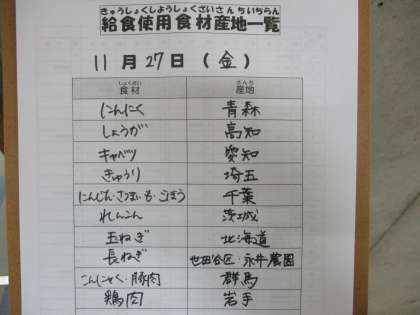 きゅうしょくしようしょくざいさんちいちらん
給食使用食材産地一覧
11月27日(金)
しょくざい さんち
食材 産地
にんにく 青森
しょうが 高知
キャベツ 愛知
きゅうり 埼玉
にんじん・さつまいも・ごぼう 千葉
れんこん 茨城
玉ねぎ 北海道
長ねぎ 世田谷区・永井農園
こんにゃく・豚肉 群馬
鶏肉 岩手